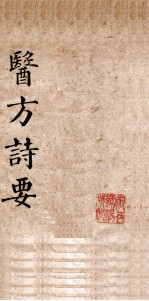 醫方詩要